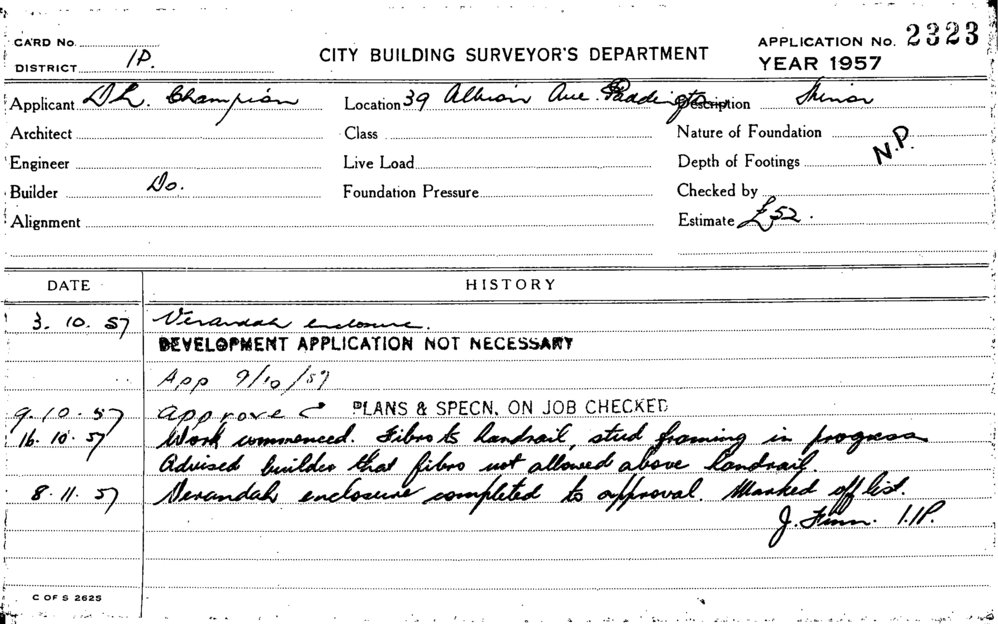 CARD No.
CITY BUILDING SURVEYOR'S DEPARTMENT
APPLICATION No. 2323
DISTRICT 1P.
YEAR 1957
Applicant D L. Champion Location 39 Albion Ave. Paddington Description Minor
Architect Class Nature of Foundation
Engineer Live Load Depth of Footings N.P.
Builder Do. Foundation Pressure Checked by
Alignment Estimate £52.
DATE HISTORY
3. 10. 57 Verandah enclosure.
DEVELOPMENT APPLICATION NOT NECESSARY
App 9/10/57
9. 10. 57 approve PLANS & SPECN. ON JOB CHECKED
16. 10. 57 Work commenced. Fibro to handrail, stud framing in progress
Advised builder that fibro not allowed above handrail.
8. 11. 57 Verandah enclosure completed to approval. Marked off list.
J. Finn. 1.1P.
C OF S 2625